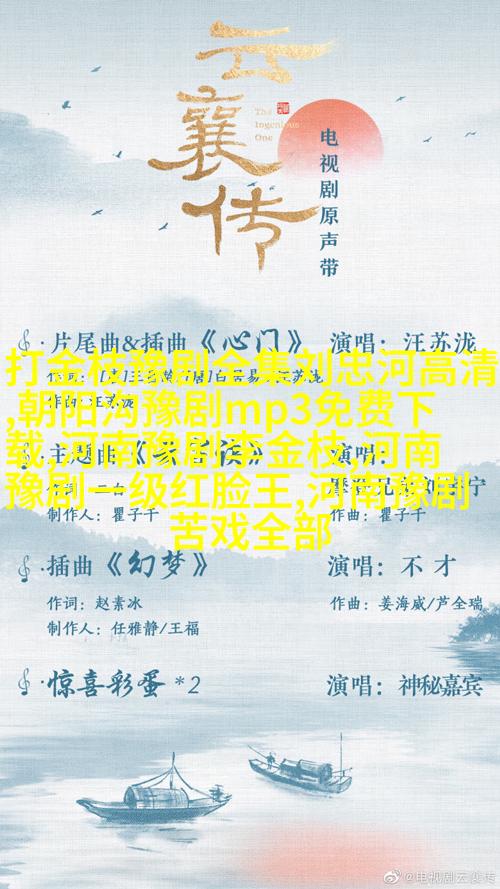 云襄传
The Ingenious One
电视剧原声带
片尾曲&插曲《心门》 演唱：汪苏泷
打金枝豫剧全集刘忠河高清
,朝阳沟豫剧mp3免费下
载,河南豫剧李金枝,河南
豫剧一级红脸王,河南豫剧
苦戏全部
作曲：汪苏泷
主题曲
制作人：瞿子千 作曲：瞿子千
插曲《幻梦》 演唱：不才
作词：赵素冰 作曲：姜海威/芦全瑞
制作人：任雅静/王福
惊喜彩蛋*2 演唱：神秘嘉宾
@电视剧云襄传